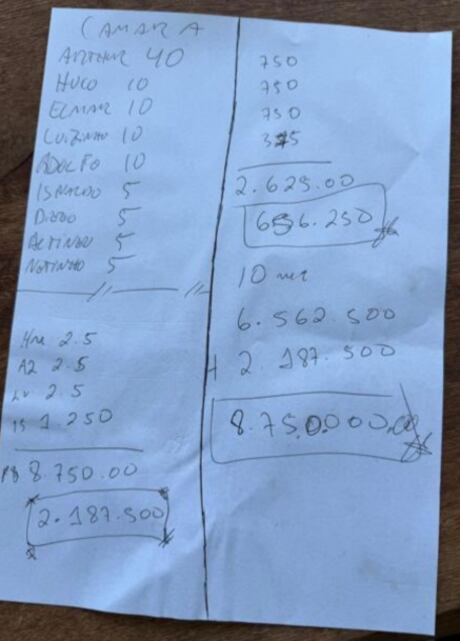 CAMARA
ARTHUR 40
HUGO 10
ELMAR 10
LUIZINHO 10
ADOLFO 10
ISNALDO 5
DIOGO 5
ALTINEU 5
NETINHO 5
2.5
A2 2.5
LV 2.5
IS 1.250
8.750.00
2.187.500
750
750
750
375
2.625.00
656.250
10
6.562.500
2.187.500
8.750.000,00